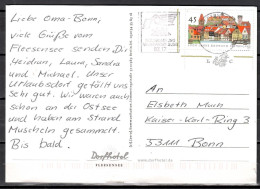 Liebe Oma-Bonn,
viele Grüße vom
Fleesensee senden Dir
Heidrun, Laura, Sandra
und Michael. Unser
Urlaubsdorf gefällt uns
sehr gut. Wir waren auch
schon an der Ostsee
und haben am Strand
Muscheln gesammelt.
Bis bald.
Dorfhotel
FLEESENSEE
45
An
Elsbeth
Kaiser-Karl-Ring 3
53111 Bonn